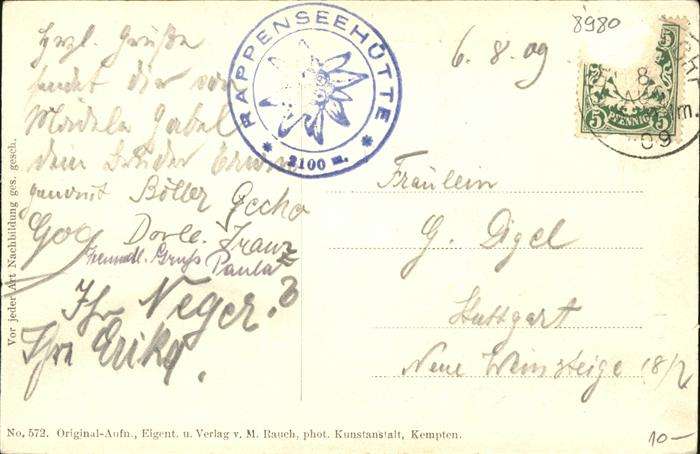 Hrzl. Grüße
sendet dir von
Mädele Gabel
dein Bruder Erwin
genannt Böller Gecko
Gog Dorle. Franz
Freundl. Gruß Paula
Ihr Neger.
Ihr Erika.
RAPPENSEEHÜTTE
2100 m.
6.8.09
8980
5
PFENNIG
5 5
8
09
m.
Fräulein
G. Digel
Stuttgart
Neue Weinsteige 18/2
Vor jeder Art Nachbildung ges. gesch.
No. 572. Original-Aufn., Eigent. u. Verlag v. M. Rauch, phot. Kunstanstalt, Kempten.
10—